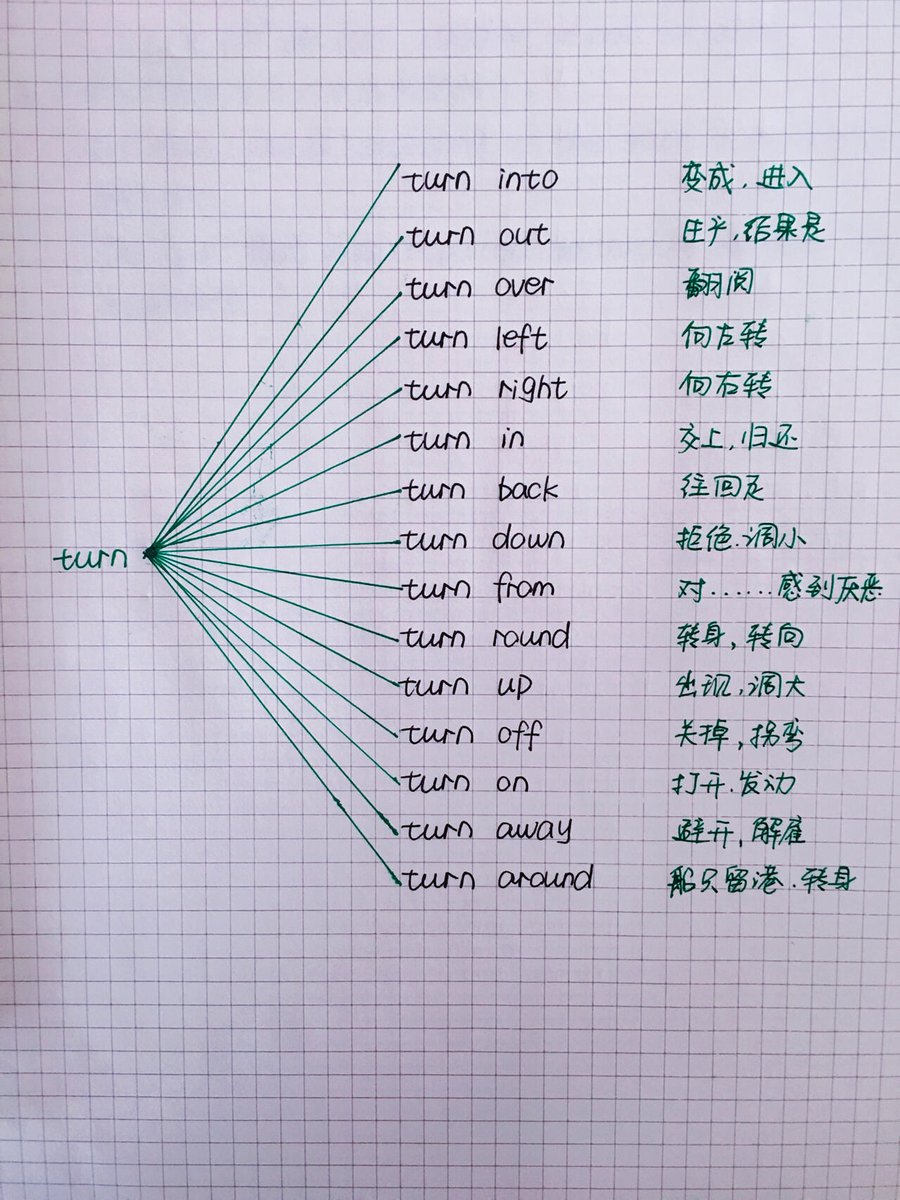 turn into 变成，进入
turn out 生产，结果是
turn over 翻阅
turn left 向左转
turn right 向右转
turn in 交上，归还
turn back 往回走
turn down 拒绝．调小
turn
turn from 对……感到厌恶
turn round 转身，转向
turn up 出现，调大
turn off 关掉，拐弯
turn on 打开．发动
turn away 避开，解雇
turn around 船只留港．转身